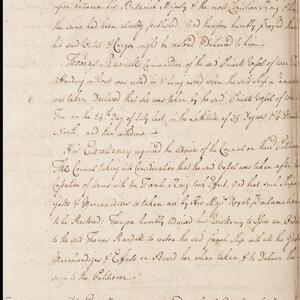 upon between his Britanick Majesty & the most Christian King
the same had been already published And therefore humbly prayed that
his said Vessel & Cargo might be restored & Delivered to him
Thomas Randall Commander of the said Private Vessel of War
attending without was called in & being asked when the said Ship
was taken Declared that she was taken by the said Private Vessel of War
on the 24th Day of July last, in the Latitude of 35 Degrees &
North, and then withdrew
His Excellency required the Advice of the Council on the said Petition
The Council taking into Consideration that the said Vessel was taken after the
Cessation of Arms with the French King took Effect And that such
Goods & Merchandizes so taken are by His Majtys Royal Proclamation
to be Restored: Thereupon humbly advised his Excellency to Issue an Order
to the said Thomas Randall to restore the said French Ship with all the Goods
Merchandizes & Effects on Board her when taken & to Deliver the
same to the Petitioner